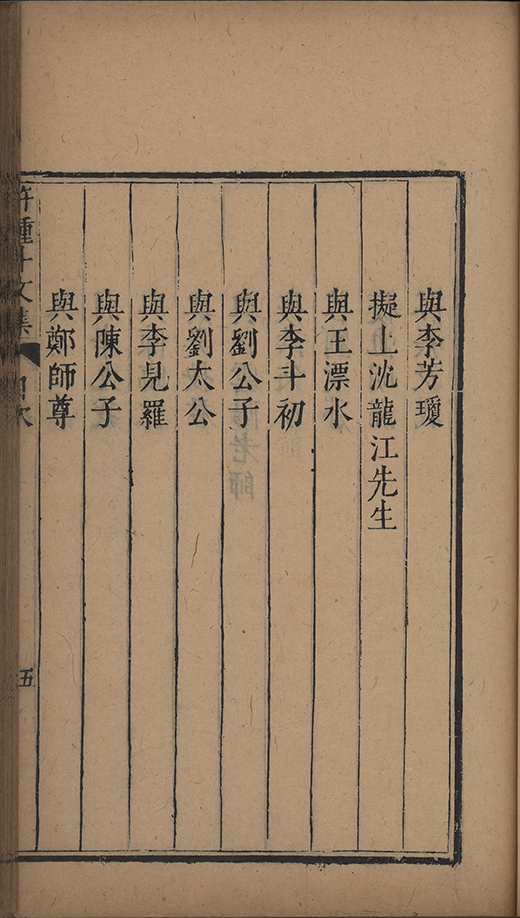 與李芳瓊
擬上沈龍江先生
與王漂水
與李斗初
與劉公子
與劉太公
與李見羅
與陳公子
與鄭師尊
許鍾斗文集 目次
五